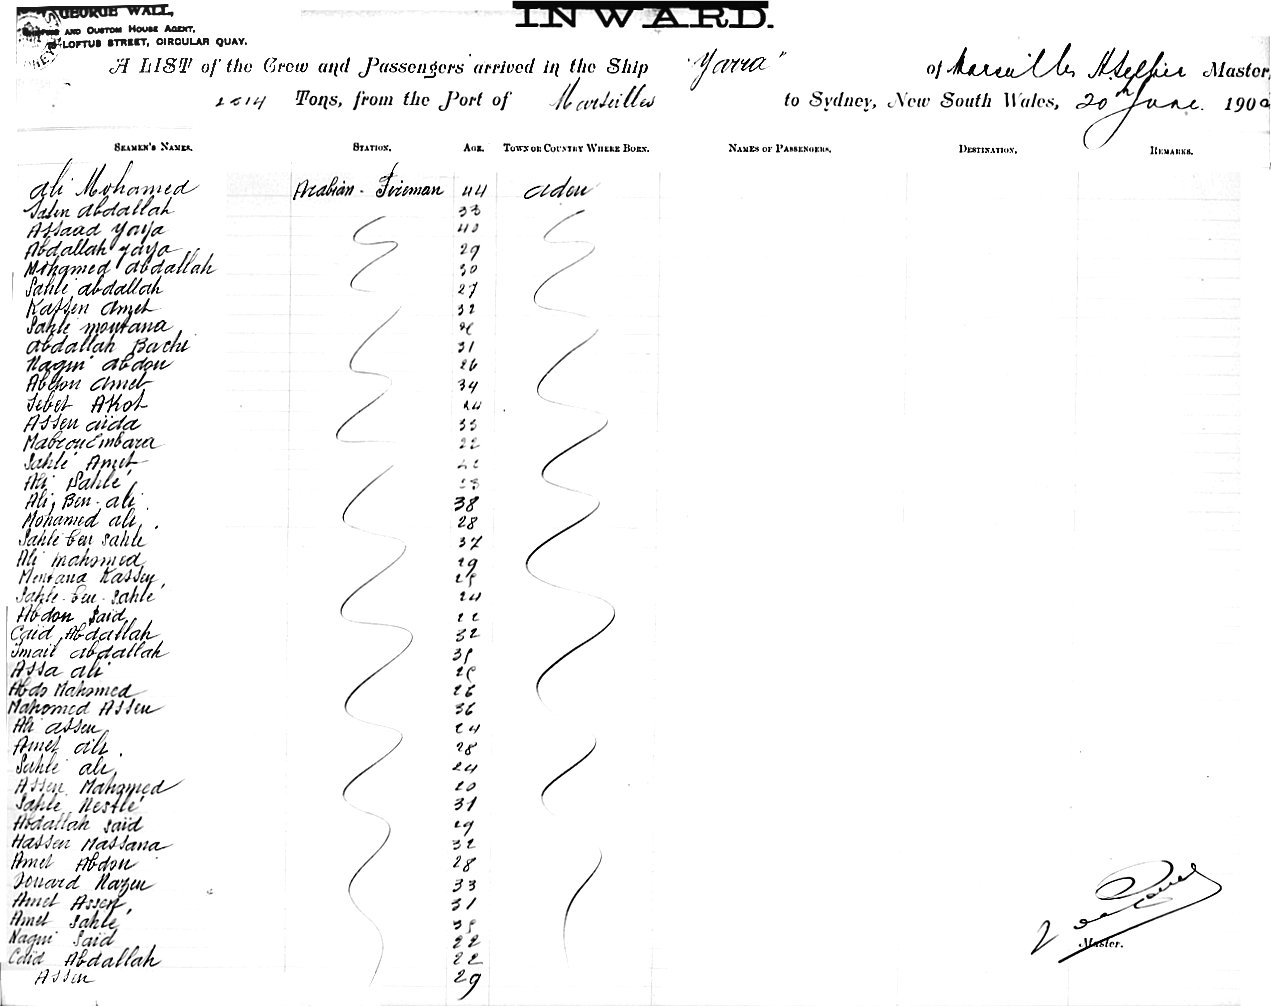 INWARD.
GEORGE WALL,
AND CUSTOM HOUSE AGENT,
LOFTUS STREET, CIRCULAR QUAY.
A LIST of the Crew and Passengers arrived in the Ship "Yarra" of Marseilles Master,
Tons, from the Port of Marseilles to Sydney, New South Wales, 20th June. 190
SEAMEN'S NAMES. STATION. AGE. TOWN OR COUNTRY WHERE BORN. NAMES OF PASSENGERS. DESTINATION. REMARKS.
Ali Mohamed Arabian - Fireman 44 Aden
Salen Abdallah 33
Assaad Yaya 40
Abdallah Yaya 29
Mohamed Abdallah 30
Sahlé Abdallah 27
Kassen Amet 32
Sahlé Montana
Abdallah Bachi 31
Nagui Abdou 26
Abdou Amet 34
Akot
Assen Aida 35
Mabrou Embara 22
Sahlé Amet
Ali Sahlé 23
Ali, Ben-ali. 38
Mohamed ali, . 28
Sahlé ben Sahlé 37
Ali Mahomed 29
Montana Kassen,
Sahlé-ben-Sahlé 24
Abdou Saïd 22
Caïd Abdallah 32
Smaïl Abdallah 35
Assa Ali
Abdo Mahomed 26
Mahomed Assen 36
Ali Assen 24
Amet Ali. 28
Sahlé ali, 24
Assen Mahomed 20
Sahlé Nestlé 31
Abdallah Saïd 29
Hassen Massana 32
Amet Abdou 28
Nazen 33
Amet Assen, 31
Amet Sahlé 35
Nagui Saïd 22
Caïd Abdallah 22
Assen 29
Master.